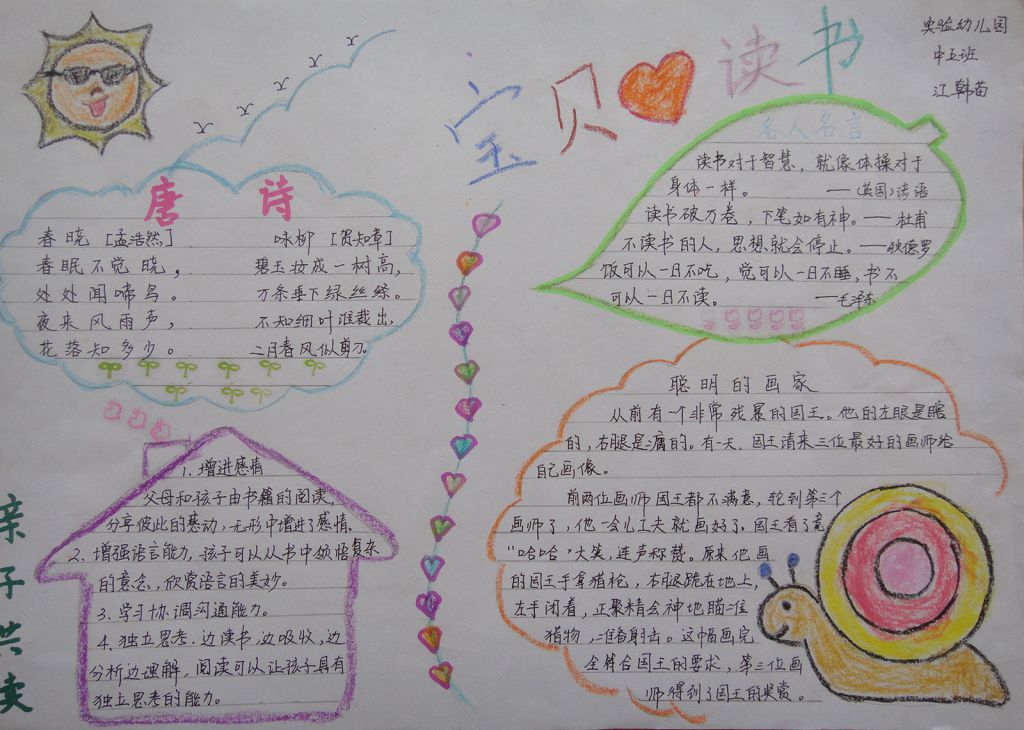 宝贝读书
实验幼儿园
中五班
江韩苗
唐 诗
春晓 [孟浩然]
春眠不觉晓，
处处闻啼鸟。
夜来风雨声，
花落知多少。
咏柳 [贺知章]
碧玉妆成一树高，
万条垂下绿丝绦。
不知细叶谁裁出，
二月春风似剪刀。
名人名言
读书对于智慧，就像体操对于
身体一样。 ——(英国)谚语
读书破万卷，下笔如有神。——杜甫
不读书的人，思想就会停止。——狄德罗
饭可以一日不吃，觉可以一日不睡，书不
可以一日不读。 ——毛泽东
亲子共读
1、增进感情
父母和孩子由书籍的阅读，
分享彼此的感动，无形中增进了感情。
2、增强语言能力，孩子可以从书中领悟复杂
的意念，欣赏语言的美妙。
3、学习协调沟通能力。
4、独立思考，边读书，边吸收，边
分析边理解，阅读可以让孩子具有
独立思考的能力。
聪明的画家
从前有一个非常残暴的国王。他的左眼是瞎
的，右腿是瘸的。有一天，国王请来三位最好的画师给
自己画像。
前两位画师国王都不满意，轮到第三个
画师了，他一会儿工夫就画好了。国王看了竟
“哈哈”大笑，连声称赞。原来他画
的国王手拿猎枪，右腿跪在地上，
左手闭着，正聚精会神地瞄准
猎物，准备射击。这幅画完
全符合国王的要求，第三位画
师得到了国王的奖赏。